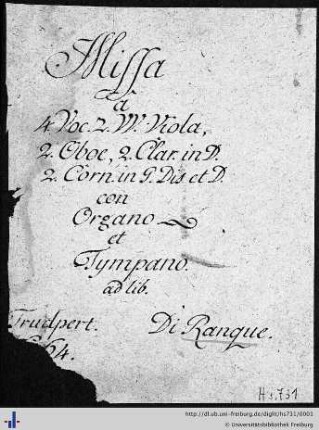 Missa
à
4. Voc. 2. VV. Viola,
2. Oboe, 2. Clar. in D.
2. Corn. in G. Dis et D.
con
Organo
et
Tympano.
ad lib.
Trudpert. Di Ranque.
64.
Hs. 731
http://dl.ub.uni-freiburg.de/diglit/hs731/0001
© Universitätsbibliothek Freiburg